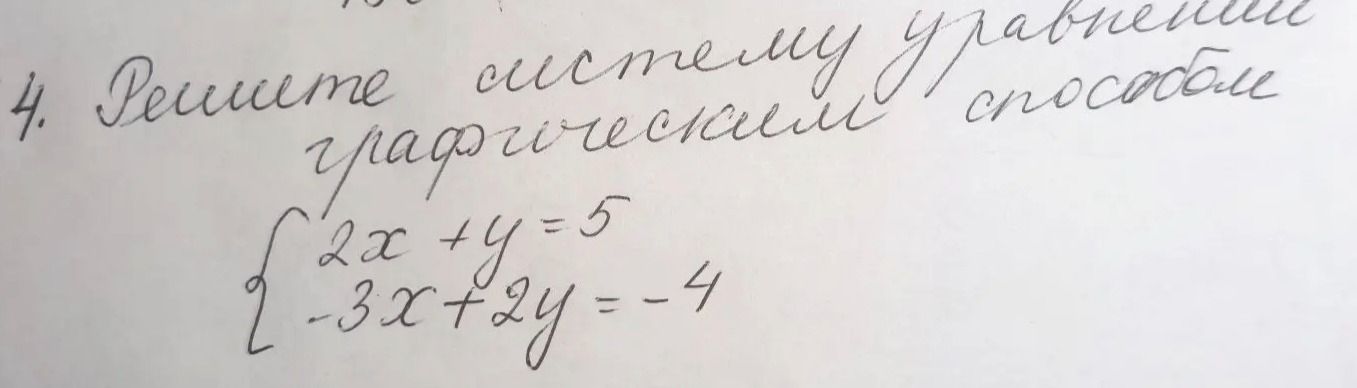 4. Решите систему уравнений
графическим способом
2x + y = 5
-3x + 2y = -4